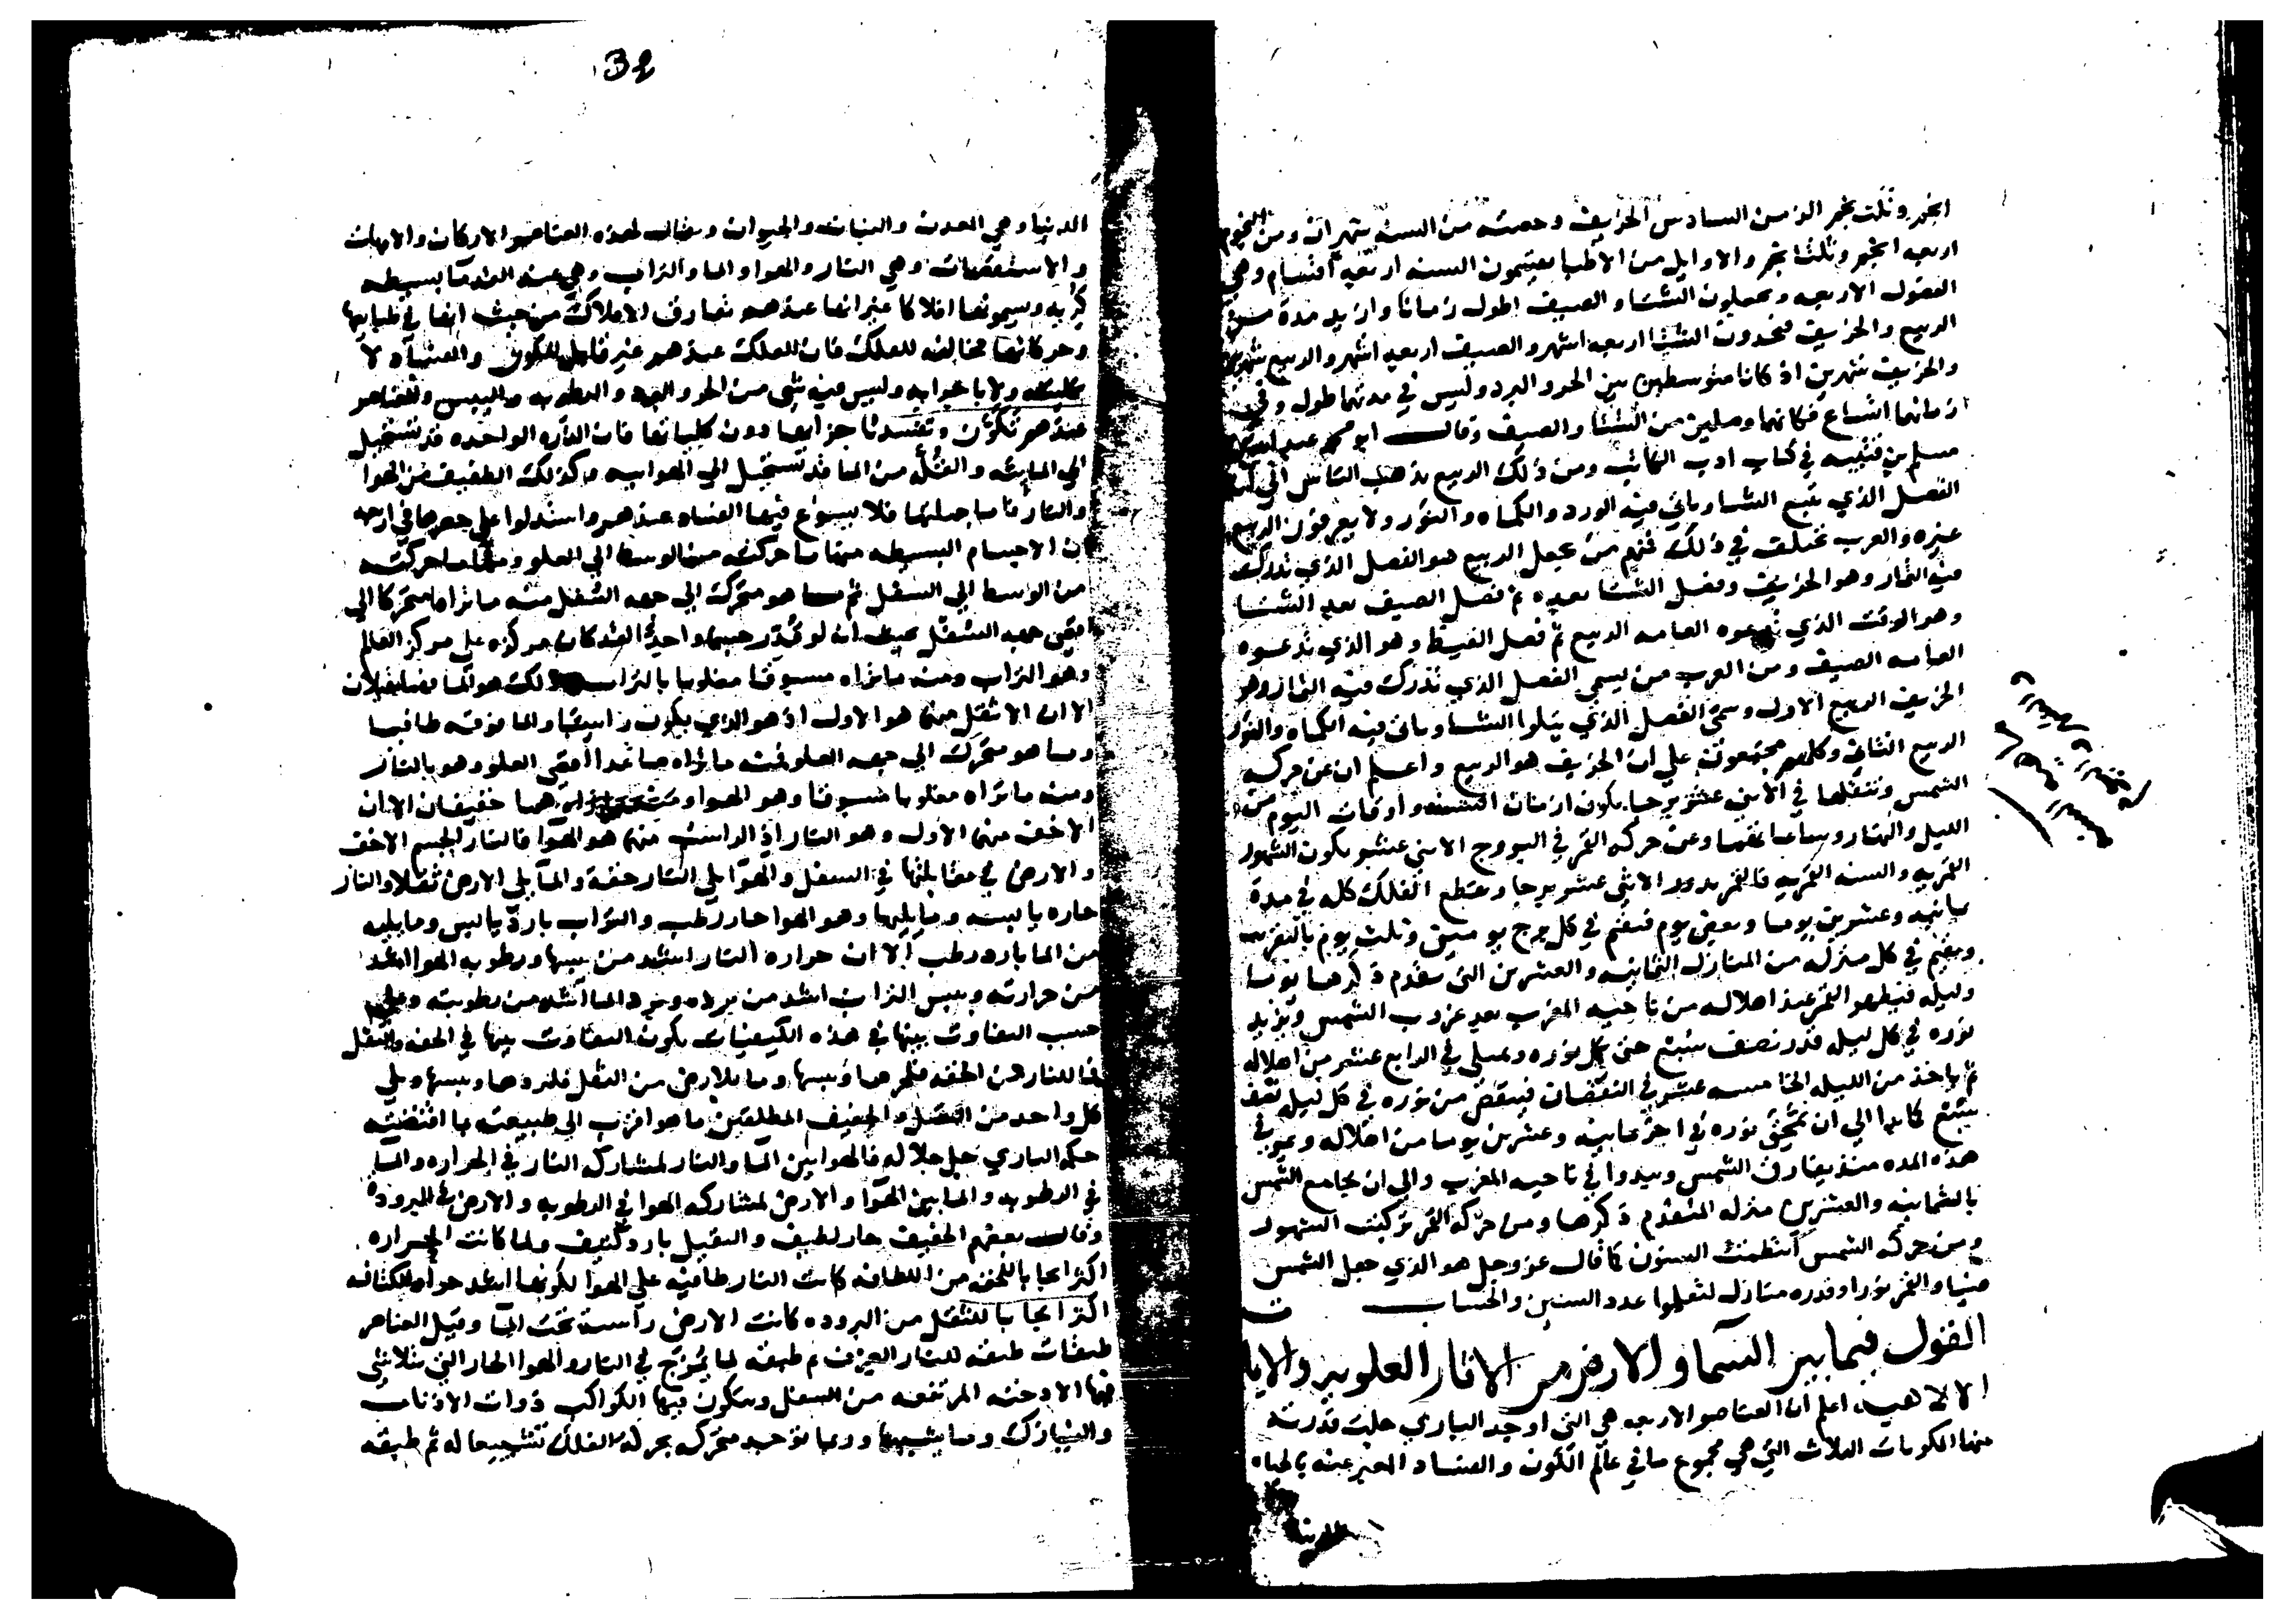 انجم وثلث نجم الزمن السادس الخريف وحصته من السنه شهران ومن النجوم
اربعه انجم وثلثا نجم والاوايل من الاطبا يقسمون السنه اربعة اقسام وهي
الفصول الاربعه ويجعلون الشتا والصيف اطول زمانا وازيد مدة من
الربيع والخريف فيحدون الشتا اربعه اشهر والصيف اربعه اشهر والربيع شهرين
والخريف شهرين اذ كانا متوسطين بين الحر والبرد وليس في مدتهما طول ولا في
زمانهما اتساع فكانهما وصلين من الشتا والصيف وقال ابو محمد عبد الله بن
مسلم بن قتيبه في كتاب ادب الكاتب ومن ذلك الربيع يذهب الناس الي انه
الفصل الذي يتبع الشتا وياتي فيه الورد والكماه والنور ولا يعرفون الربيع
غيره والعرب تختلف في ذلك فمنهم من يجعل الربيع هو الفصل الذي تدرك
فيه الثمار وهو الخريف وفصل الشتا بعده ثم فصل الصيف بعد الشتا
وهو الوقت الذي تدعوه العامه الربيع ثم فصل القيظ وهو الذي تدعوه
العامه الصيف ومن العرب من يسمي الفصل الذي تدرك فيه الثمار وهو
الخريف الربيع الاول ويسمي الفصل الذي يتلوا الشتا وياتي فيه الكماه والنور
الربيع الثاني وكلهم مجتمعون علي ان الخريف هو الربيع واعلم ان عن حركه
الشمس وتنقلها في الاثني عشر برجا يكون ازمان السنه واوقات اليوم من
الليل والنهار وساعاتهما وعن حركه القمر في البروج الاثني عشر يكون الشهور
القمريه والسنه القمريه فالقمر يدور الاثني عشر برجا ويقطع الفلك كله في مدة
ثمانيه وعشرين يوما وبعض يوم فيقيم في كل برج يومين وثلث يوم بالتقريب
ويقيم في كل منزله من المنازل الثمانيه والعشرين التي تقدم ذكرها يوما
وليله فيظهر القمر عند اهلاله من ناحيه المغرب بعد غروب الشمس ويزيد
نوره في كل ليله قدر نصف سبع حتى يكمل نوره ويمتلي في الرابع عشر من اهلاله
ثم ياخذ من الليله الخامسه عشر في النقصان فينقص من نوره في كل ليله نصف
سبع كما بدا الي ان يمحق نوره في اخر ثمانيه وعشرين يوما من اهلاله ويمر في
هذه المده منذ يفارق الشمس ويبدوا في ناحيه المغرب والي ان يجامع الشمس
بالثمانيه والعشرين منزله المتقدم ذكرها ومن حركه القمر تركبت الشهور
ومن حركه الشمس انتظمت السنون كما قال عز وجل هو الذي جعل الشمس
ضيا والقمر نورا وقدره منازل لتعلموا عدد السنين والحساب
القول فيما بين السما والارض من الاثار العلويه والايات
الالاهيه اعلم ان العناصر الاربعه هي التي اوجد الباري جلت قدرته
منها المكونات الثلاث التي هي مجموع ما في عالم الكون والفساد المعبر عنه بالحياه
الدنيا
32
الدنيا وهي المعدن والنبات والحيوان ويقال لهذه العناصر الاركان والامهات
والاستقصات وهي النار والهوا والما والتراب وهي عند القدما بسيطه
كريه ويسمونها افلاكا غير انها عندهم تفارق الافلاك من حيث انها في طبايعها
وحركاتها مخالفه للفلك فان الفلك عندهم غير قابل للكون والفساد لا
بكليته ولا باجزايه وليس فيه شي من الحر والبرد والرطوبه واليبس والعناصر
عندهم تكون وتفسد باجزايها دون كلياتها فان الذره الواحده قد تستحيل
الي المايته والقله من الما قد تستحيل الي الهوايه وكذلك الطفيف من الهوا
والنار فاما جملتها فلا يسوغ فيها الفساد عندهم واستدلوا علي حصرها في اربعه
بان الاجسام البسيطه منها ما حركته من الوسط الي العلو ومنها ما حركته
من الوسط الي السفل ثم ما هو متحرك الي جهه السفل منه ما نراه متحركا الي
اقصي جهه السفل بحيث ان لو قدر جسما واحدا لقد كان مركزه علي مركز العالم
وهو التراب ومنه ما نراه مسبوقا مغلوبا بالتراب وذلك هو الما فهما ثقيلان
الا ان الاثقل منهما هو الاول اذ هو الذي يكون راسبا والما فوقه طافيا
وما هو متحرك الي جهه العلو فمنه ما نراه صاعدا اقصي العلو وهو بالنار
ومنه ما نراه مغلوبا مسبوقا وهو الهوا وهما خفيفان الا ان
الاخف منهما الاول وهو النار اذ الراسب منهما هو الهوا فالنار الجسم الاخف
والارض في مقابلتها في السفل والهوا يلي النار خفة والما يلي الارض ثقلا والنار
حاره يابسه وما يليها وهو الهوا حار رطب والتراب بارد يابس وما يليه
من الما بارد رطب الا ان حراره النار اشد من يبسها ورطوبه الهوا اشد
من حرارته ويبس التراب اشد من برده وبرد الما اشد من رطوبته وعلي
حسب التفاوت بينها في هذه الكيفيات يكون التفاوت بينها في الخفه والثقل
فما للنار من الخفه فلحرها ويبسها وما للارض من الثقل فلبردها ويبسها ويلي
كل واحد من الثقيل والخفيف المطلقين ما هو اقرب الي طبيعته بما اقتضته
حكم الباري جل جلاله فالهوا بين الما والنار لمشاركه النار في الحراره والما
في الرطوبه والما بين الهوا والارض لمشاركه الهوا في الرطوبه والارض في البرودة
وقال بعضهم الخفيف حار لطيف والثقيل بارد كثيف ولما كانت الحراره
اكثر ايجابا للخفه من اللطافه كانت النار طافيه علي الهوا لكونها اشد حرا والكثافه
اكثر ايجابا للثقل من البروده كانت الارض راسبة تحت الما وقيل العناصر
طبقات طبقه للنار الصرف ثم طبقه لما يمتزج في النار والهوا الحار التي تتلاشي
فيها الادخنه المرتفعه من السفل وتتكون فيها الكواكب ذوات الاذناب
والنيازك وما يشبهها وربما توجد متحركه بحركه الفلك تشييعا له ثم طبقه